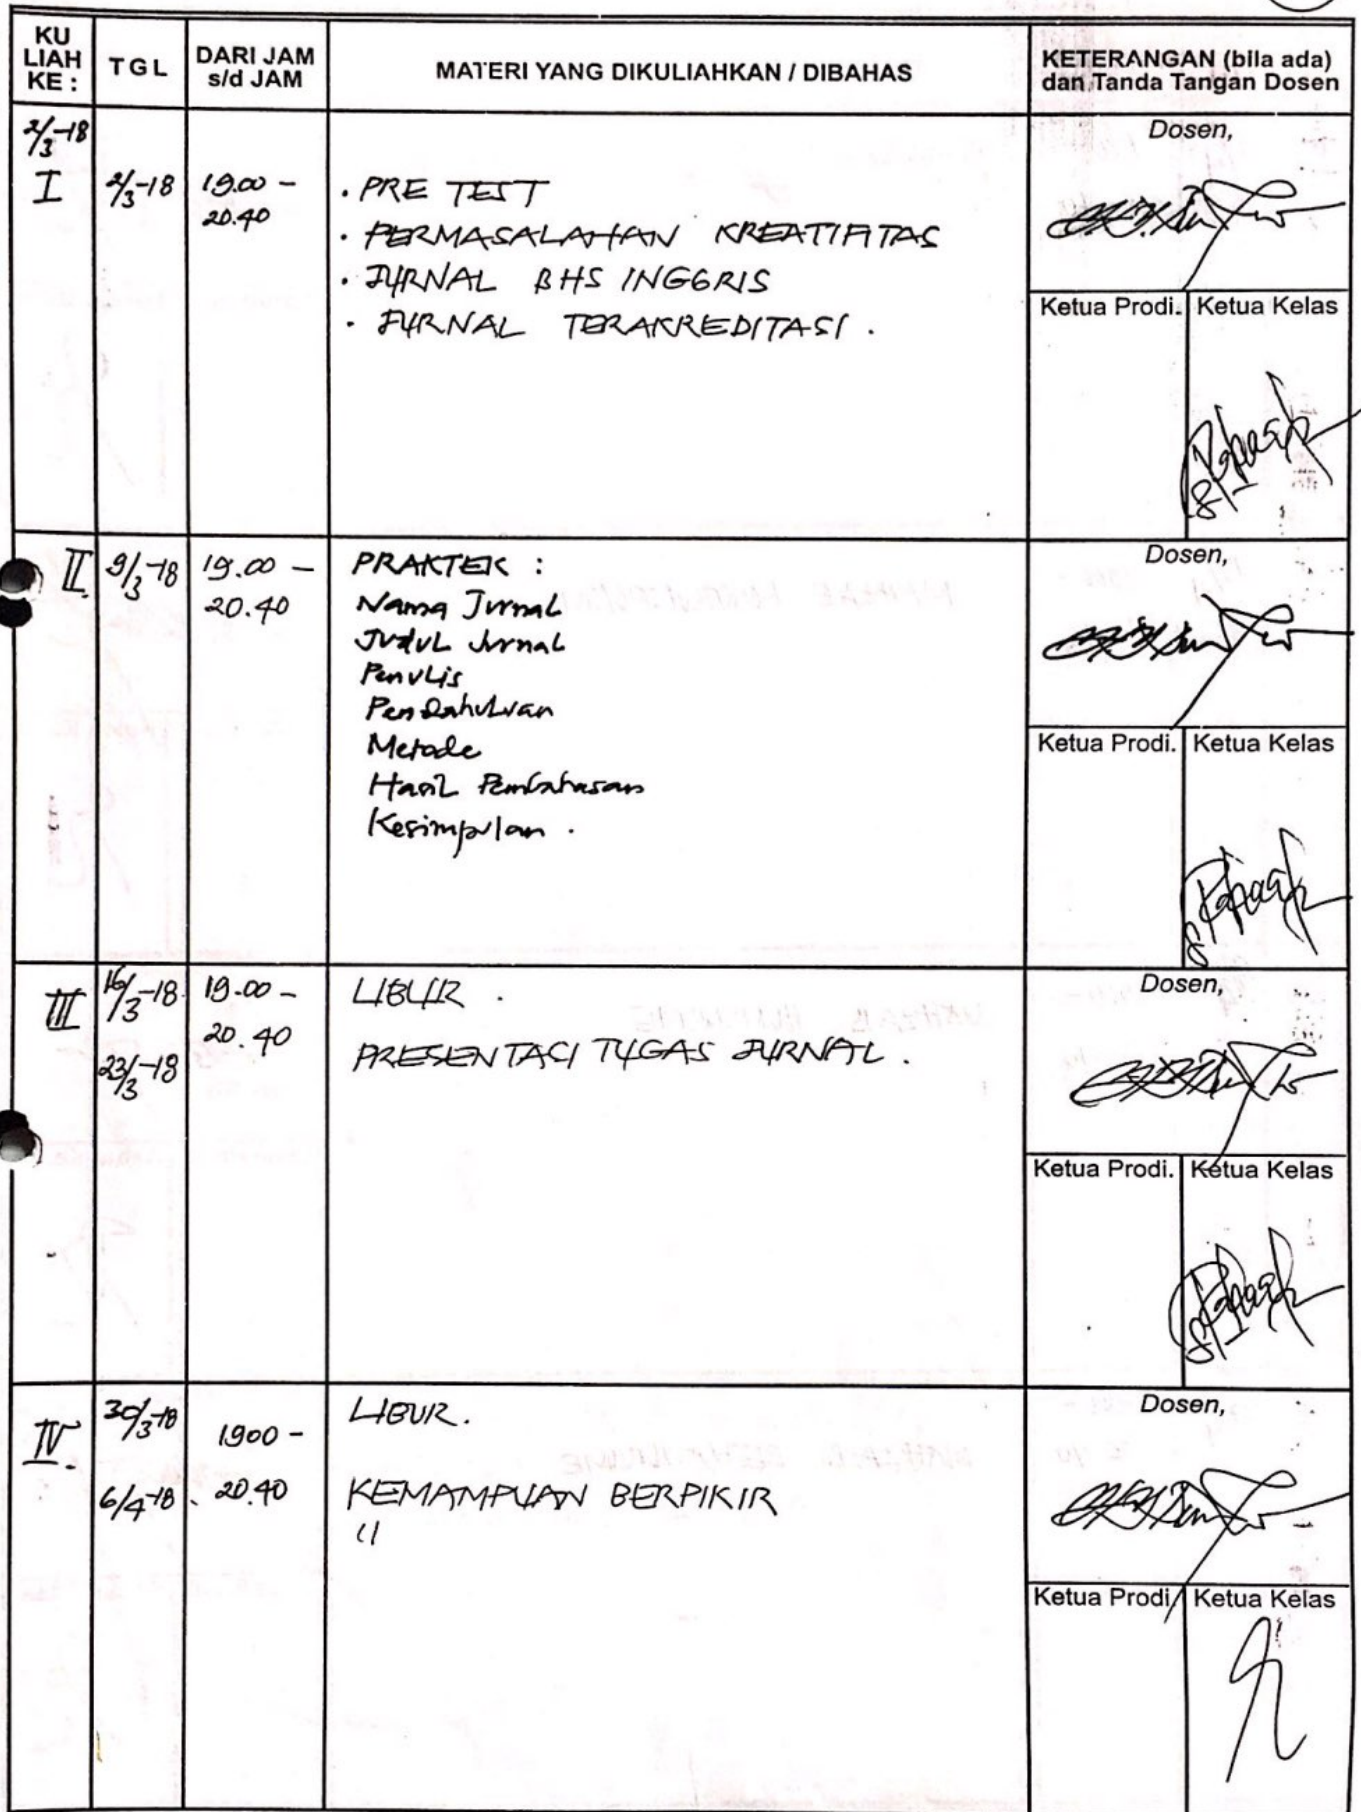 KU LIAH KE :
TGL
DARI JAM s/d JAM
MATERI YANG DIKULIAHKAN / DIBAHAS
KETERANGAN (bila ada) dan Tanda Tangan Dosen
2/3-18
I
2/3-18
19.00 -
20.40
. PRE TEST
. PERMASALAHAN KREATIFITAS
. JURNAL BHS INGGRIS
. JURNAL TERAKREDITASI .
Dosen,
Ketua Prodi. Ketua Kelas
II.
9/3-18
19.00 -
20.40
PRAKTEK :
Nama Jurnal
Judul Jurnal
Penulis
Pendahuluan
Metode
Hasil Pembahasan
Kesimpulan .
Dosen,
Ketua Prodi. Ketua Kelas
III
16/3-18
23/3-18
19.00 -
20.40
LIBUR .
PRESENTACI TUGAS JURNAL .
Dosen,
Ketua Prodi. Ketua Kelas
IV.
30/3-18
6/4-18.
1900 -
20.40
LIBUR.
KEMAMPUAN BERPIKIR
"
Dosen,
Ketua Prodi. Ketua Kelas